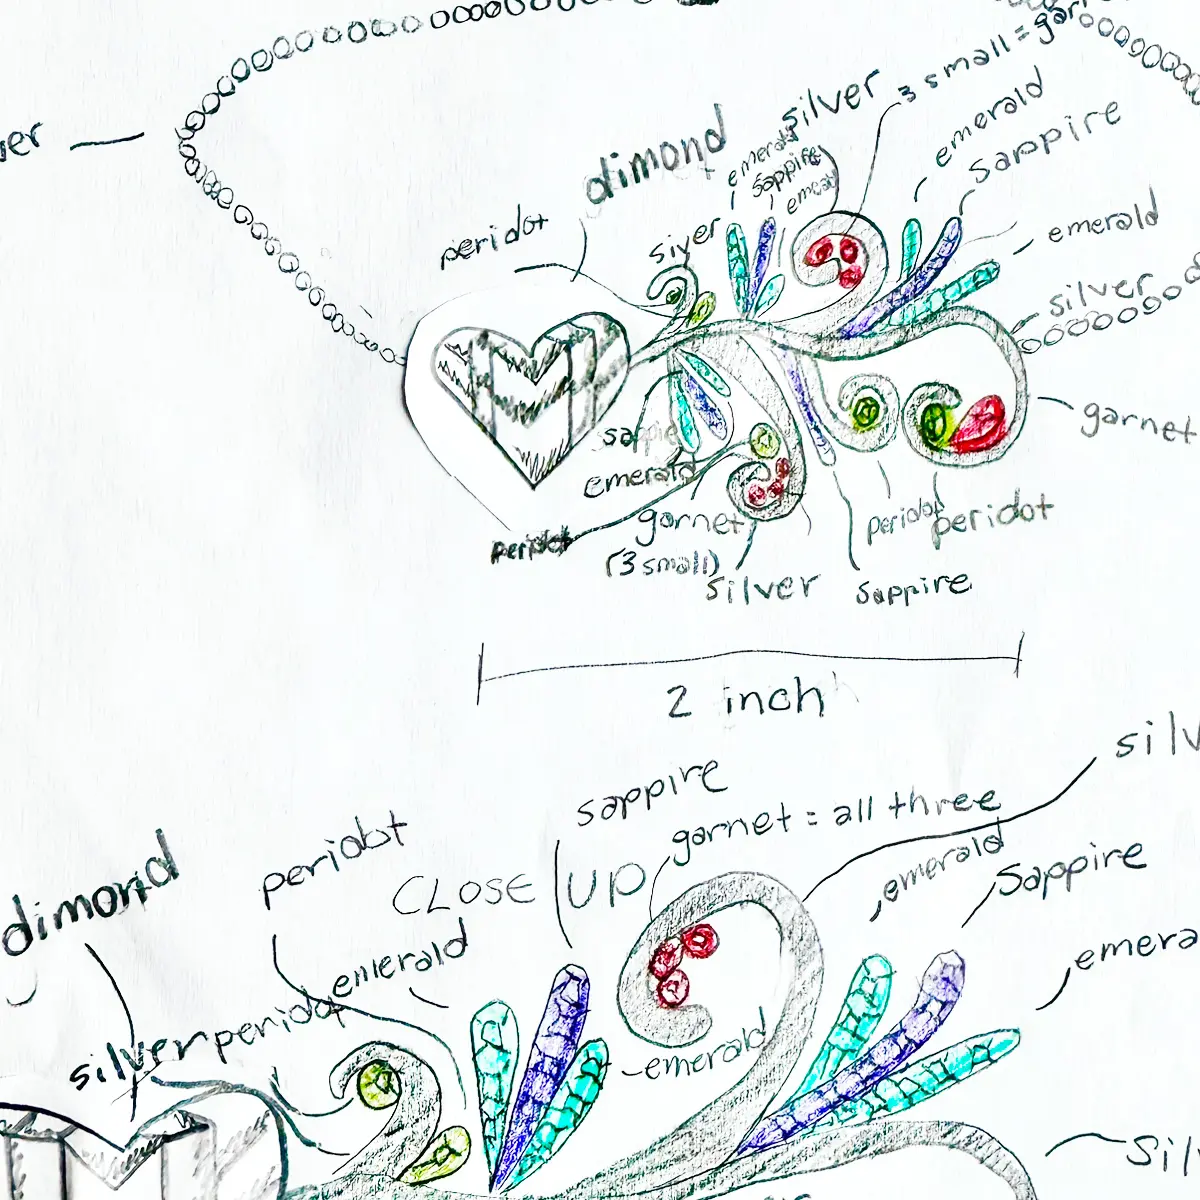 3 small = gar
silver
dimond
emerald
sappire
emerald
emerald
sappire
peridot
siver
emerald
silver
garnet
sappire
emerald
garnet
(3 small)
silver
peridot
peridot
sappire
2 inch
silv
sappire
garnet = all three
CLOSE UP
peridot
dimond
emerald
emerald
sappire
emera
silver
peridot
emerald
Sil